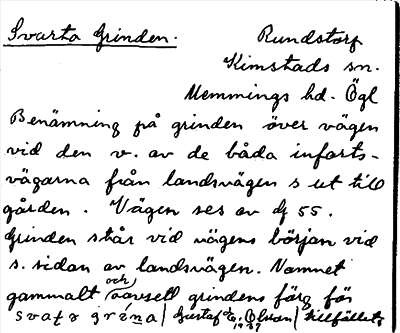 Svarta Grinden. Rundstorp
Kimstads sn.
Memmings hd. Ögl
Benämning på grinden över vägen
vid den v. av de båda infarts-
vägarna från landsvägen s ut till
gården. Vägen ses av dj 55.
Grinden står vid vägens början vid
s. sidan av landsvägen. Namnet
gammalt och oavsett grindens färg för
tillfället
svata grena / Gustaf E. Olsson /
1937